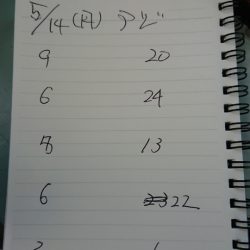 5/14(月) アジ
9 20
6 24
8 13
6 22